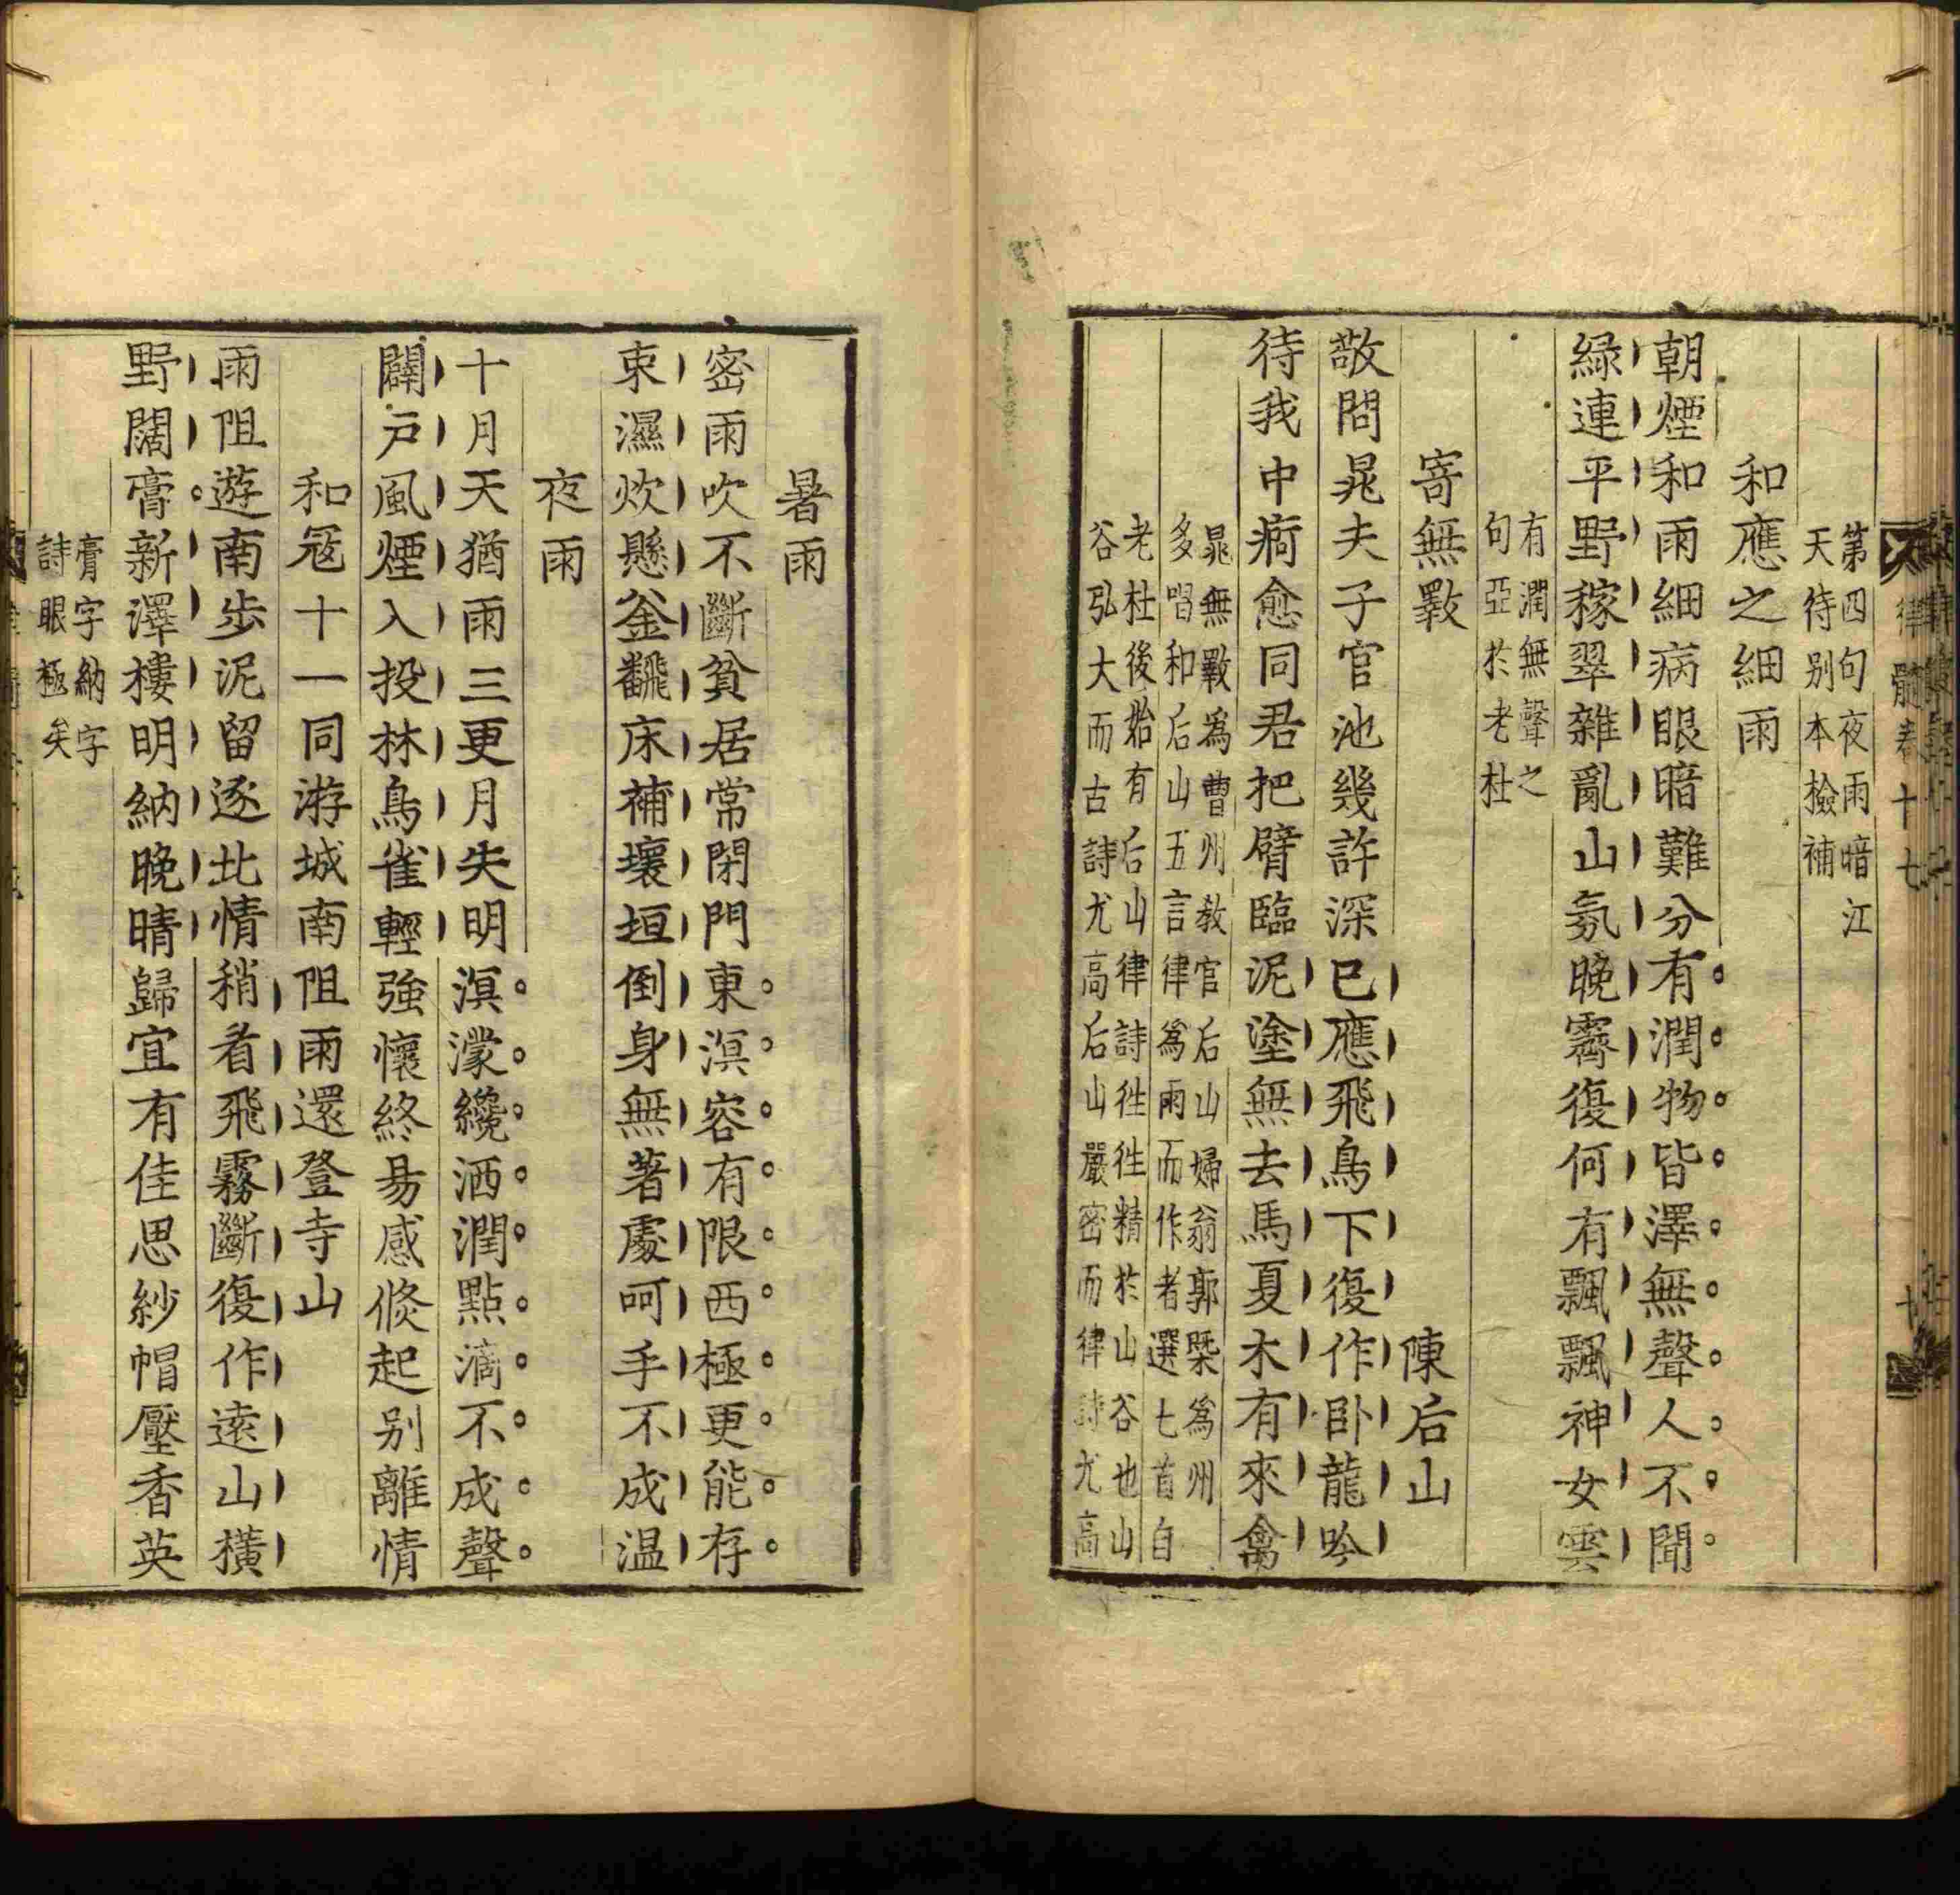 律髓卷十七
十
第四句夜雨暗江
天待别本檢補
和應之細雨
朝煙和雨細病眼暗難分有潤物皆澤無聲人不聞
緑連平野稼翠雜亂山氛晚霽復何有飄飄神女雲
有潤無聲之
句亞於老杜
寄無斁
陳后山
敬問晁夫子官池幾許深已應飛鳥下復作卧龍吟
待我中痾愈同君把臂臨泥塗無去馬夏木有來禽
晁無斁爲曹州教官后山婦翁郭槩爲州
多唱和后山五言律爲雨而作者選七首自
老杜後始有后山律詩徃徃精於山谷也山
谷弘大而古詩尤高后山嚴密而律詩尤高
暑雨
密雨吹不斷貧居常閉門東溟容有限西極更能存
束濕炊懸釜飜床補壞垣倒身無著處呵手不成温
夜雨
十月天猶雨三更月失明溟濛纔洒潤點滴不成聲
闢戸風煙入投林鳥雀輕強懷終易感倐起别離情
和冦十一同游城南阻雨還登寺山
雨阻遊南步泥留逐北情稍看飛霧斷復作逺山橫
野闊膏新澤樓明納晚晴歸宜有佳思紗帽壓香英
膏字納字
詩眼極矣